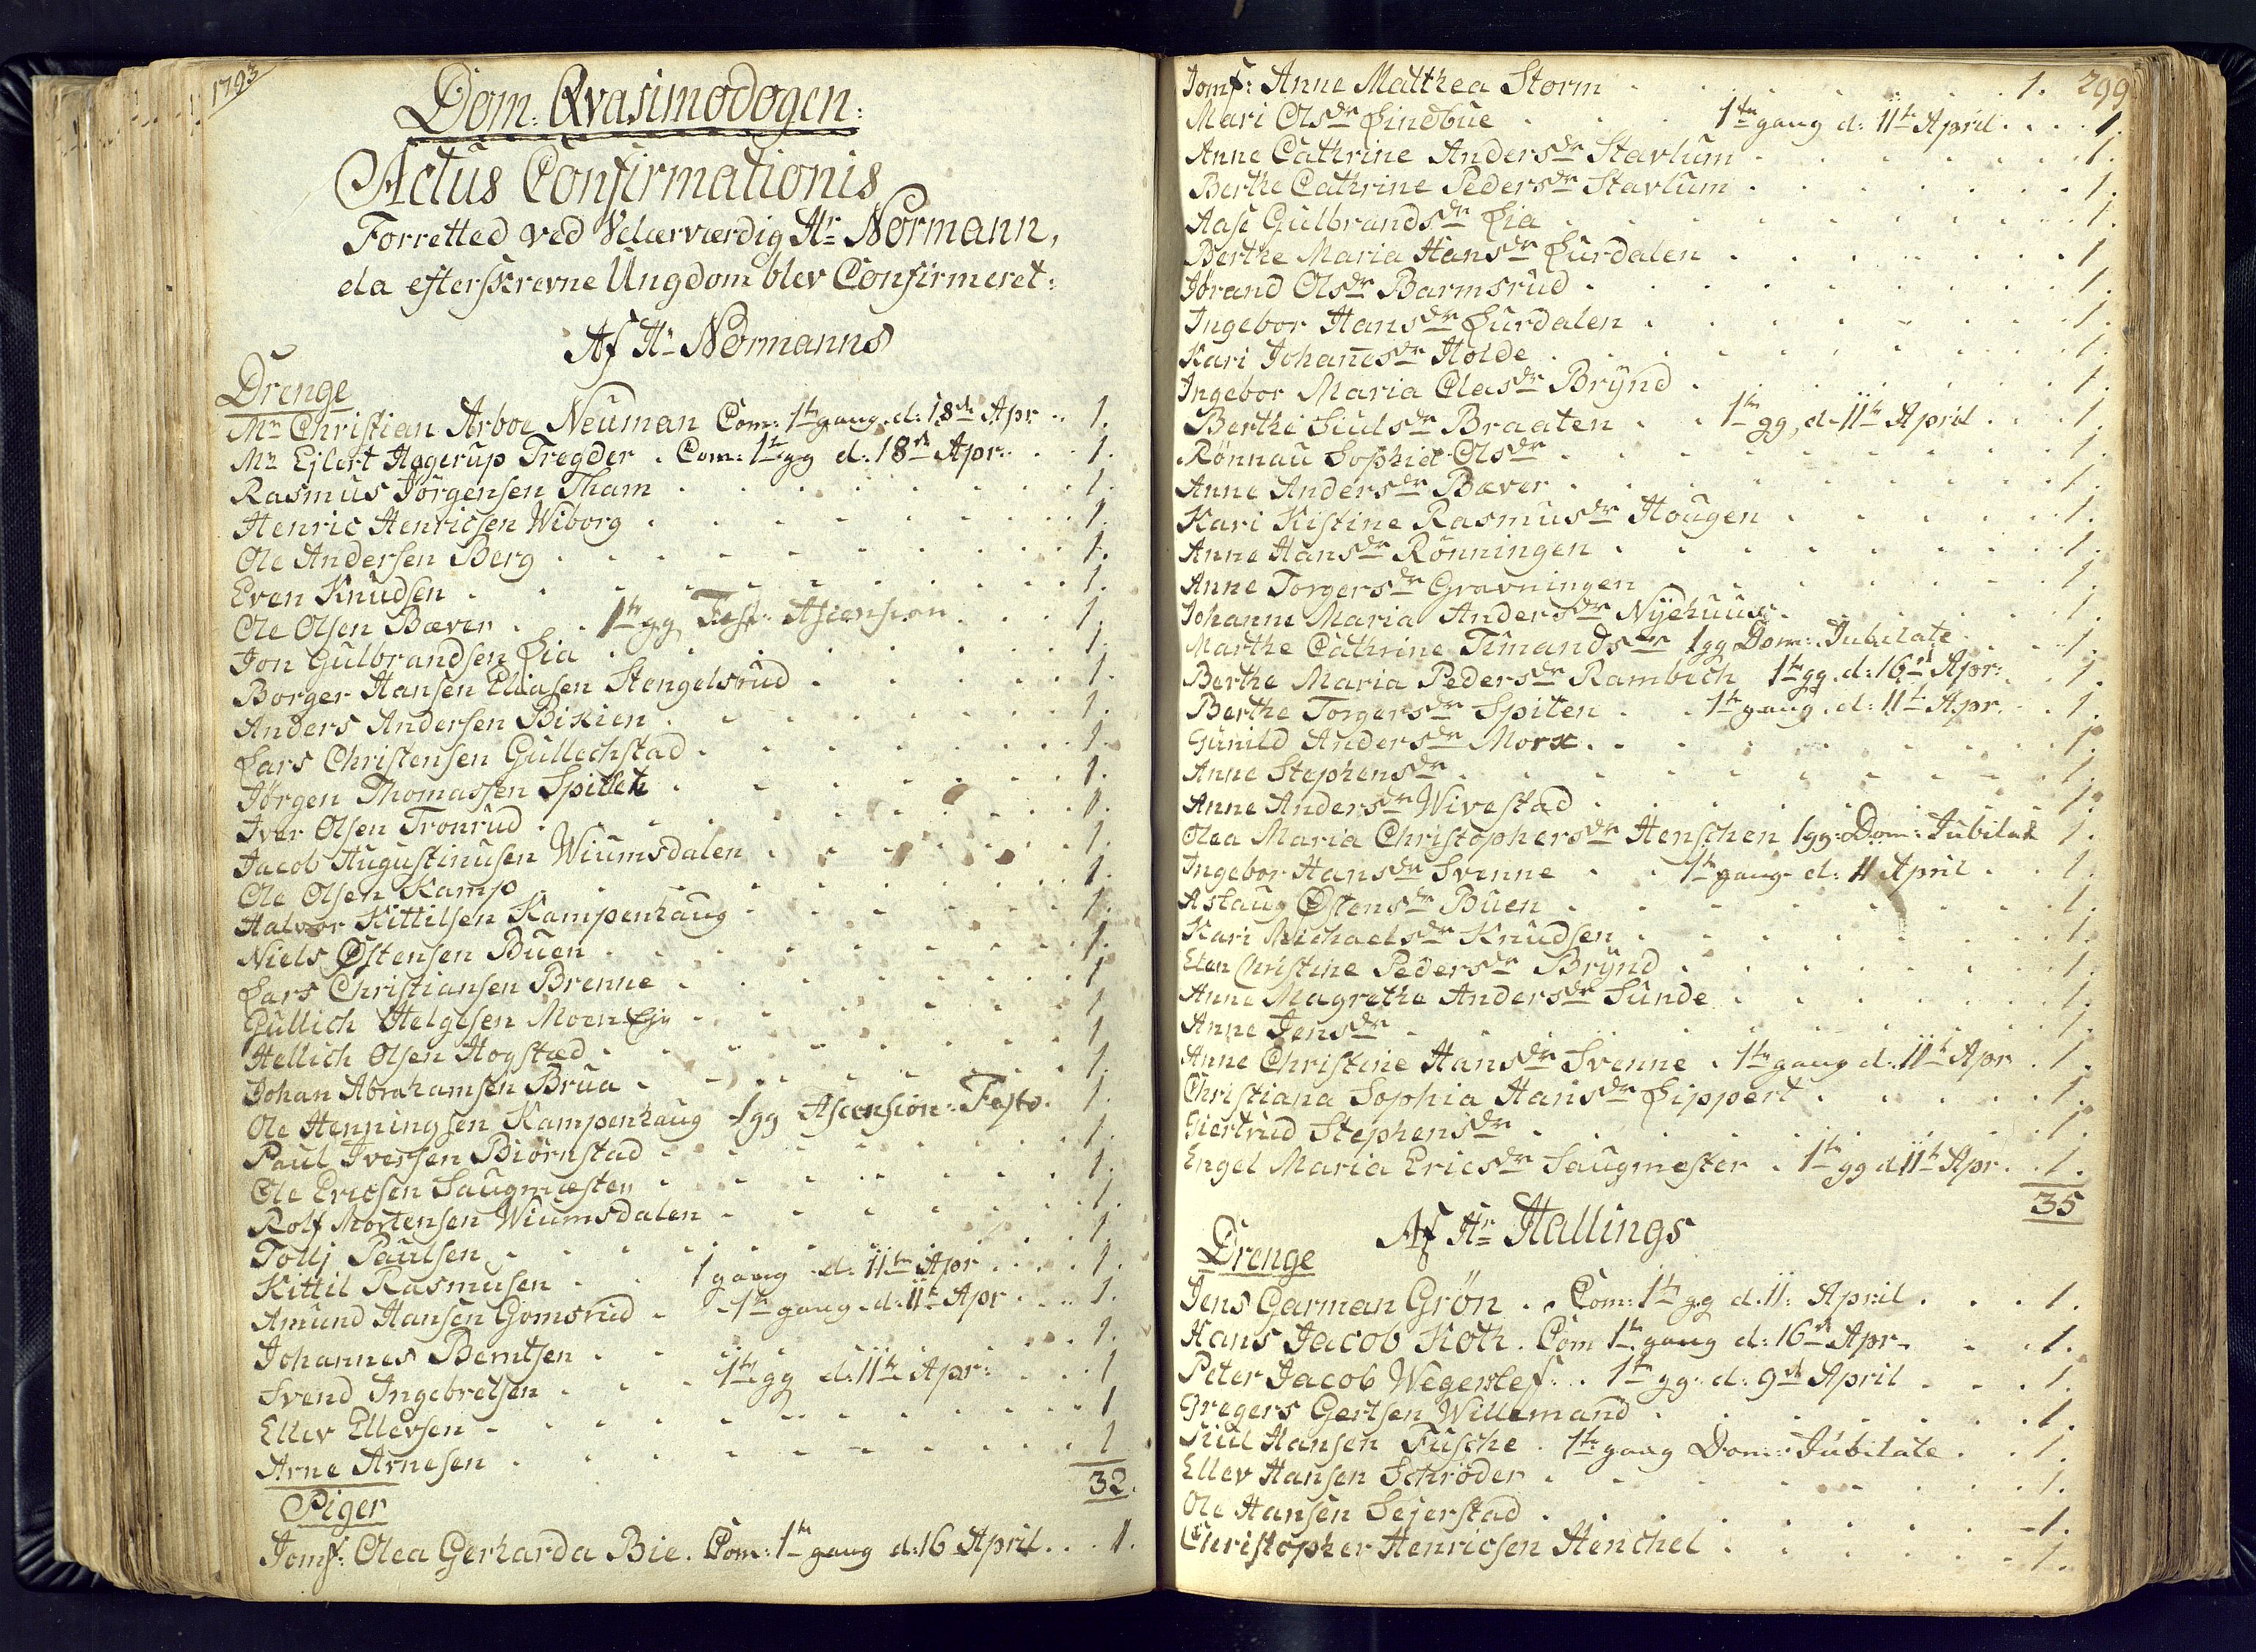 1793
Dom: Qvasimodogen:
Actus Confirmationis
Forretted ved Velærværdig Hr Normann,
da efterskrevne Ungdom blev Confirmeret:
Af Hr Normanns
Drenge
Mr Christian Arboe Neuman Com: 1te gang d: 18de Apr .. 1.
Mr Ejlert Hagerup Tregder . Com: 1te gg d: 18de Apr: . . 1.
Rasmus Jørgensen Tham . . . 1.
Henric Henricsen Wiborg . . . 1.
Ole Andersen Berg . . . 1.
Even Knudsen . . . 1.
Ole Olsen Bæver . . 1te gg Fest: Ascension . . . 1.
Jon Gulbrandsen Lia . . . 1.
Borger Hansen Eliasen Stengelsrud . . . 1.
Anders Andersen Bikien . . . 1.
Lars Christensen Gullechstad . . . 1.
Jørgen Thomassen Spiten . . . 1.
Iver Olsen Tronrud . . . 1.
Jacob Augustinusen Wiumsdalen . . . 1.
Ole Olsen Kamp . . . 1.
Halvor Kittilsen Kampenhaug . . . 1.
Niels Østensen Buen . . . 1.
Lars Christiansen Brenne . . . 1
Gullich Helgesen Moen Eje . . . 1
Hellich Olsen Hogstad . . . 1
Johan Abrahamsen Brua . . . 1.
Ole Henningsen Kampenhaug 1gg Ascension: Festo. 1.
Paul Iversen Biørnstad . . . 1.
Ole Ericsen Saugmesten . . . 1.
Rolf Mortensen Wiumsdalen . . . 1.
Tollj Paulsen . . . 1
Kittil Rasmusen . . 1 gang d: 11te Apr . . . 1.
Amund Hansen Gomsrud . 1te gang d: 11te Apr . . . 1.
Johannes Berntsen . . . 1.
Svend Ingebretsen . . . 1te gg d: 11te Apr: . . . 1
Ellev Ellevsen . . . 1
Arne Arnesen . . . 1
32.
Piger
Jomf: Olea Gerharda Bie. Com: 1te gang d: 16 April . . . 1.
299
Jomf: Anne Matthea Storm . . . 1.
Mari Olsdr Lindbue . . . 1te gang d: 11te April . . . 1.
Anne Cathrine Andersdr Stavlum . . . 1.
Berthe Cathrine Pedersdr Stavlum . . . 1.
Aase Gulbrandsdr Lia . . . 1.
Berthe Maria Hansdr Lurdalen . . . 1
Jørand Olsdr Barmsrud . . . 1.
Ingebor Hansdr Lurdalen . . . 1.
Kari Johanesdr Holde . . . 1.
Ingebor Maria Olasdr Brÿnd . . . 1.
Berthe Siulsdr Braaten . . 1te gg, d. 11te April . . . 1.
Rønnau Sophia Olsdr . . . 1.
Anne Andersdr Bæver . . . 1.
Kari Kistine Rasmusdr Hougen . . . 1.
Anne Hansdr Rønningen . . . 1.
Anne Torgersdr Gravningen . . . 1
Johanne Maria Andersdr Nÿehuus . . . 1.
Marthe Cathrine Timandsdr 1gg Dom: Jubilate . . . 1.
Berthe Maria Pedersdr Rambech 1te gg. d: 16de Apr: . 1.
Berthe Torgersdr Spiten . . 1te gang. d: 11te Apr. . . 1.
Gunild Andersdr Morx . . . 1.
Anne Stephensdr . . . 1.
Anne Andersdr Wivestad . . . 1.
Olea Maria Christophersdr Henschen 1gg: Dom: Jubilat 1.
Ingebor Hansdr Svenne . . 1te gang d: 11 April . . 1.
Aslaug Østensdr Buen . . . 1.
Kari Michaelsdr Knudsen . . . 1.
Elen Christine Pedersdr Brÿnd . . . 1.
Anne Magrethe Andersdr Sunde . . . 1.
Anne Jensdr . . . 1.
Anne Christine Hansdr Svenne . 1te gang d: 11te Apr . 1.
Christiana Sophia Hansdr Lippert . . . 1.
Giertrud Stephensdr . . . 1.
Engel Maria Ericsdr Saugmester . 1te gg d 11te Apr . . 1.
35
Af Hr Hallings
Drenge
Jens Garman Grön . . Com: 1te gg d. 11: April . . . 1.
Hans Jacob Koth . Com 1te gang d: 16de Apr . . . 1.
Peter Jacob Wegersleff: . 1te gg. d: 9de April . . . 1.
Gregers Gertsen Willemand . . . 1.
Siul Hansen Fusche . 1te gang Dom: Jubilate . . 1.
Ellev Hansen Schrøder . . . 1.
Ole Hansen Sejerstad . . . 1.
Christopher Henricsen Henchel . . . 1.